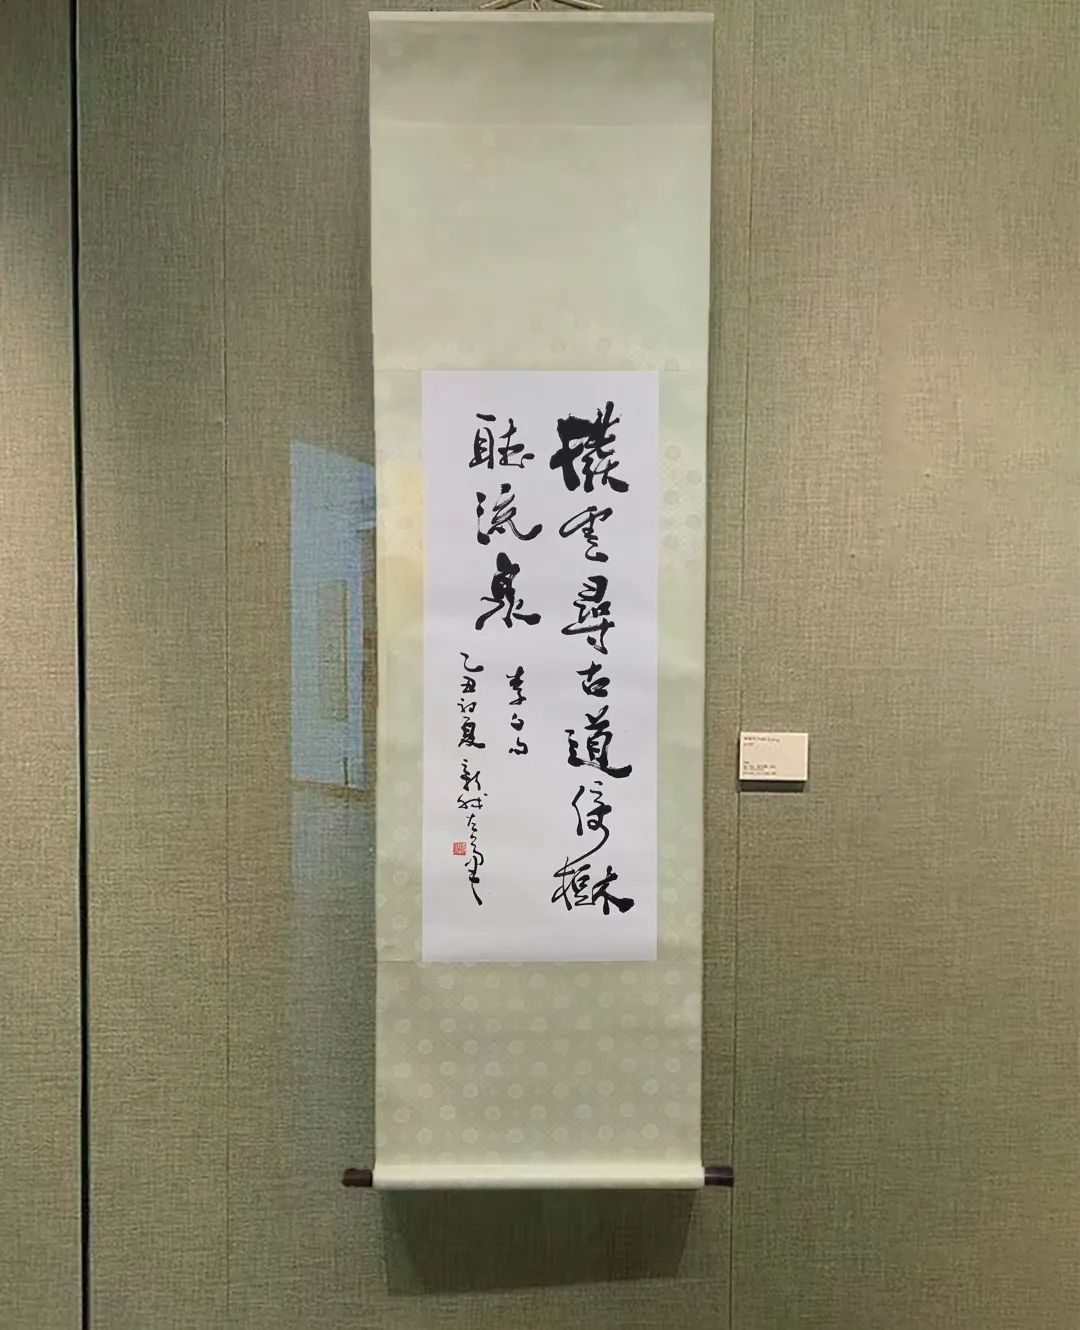 撥雲尋古道倚樹
聽流泉
李白句
乙丑初夏 新我左